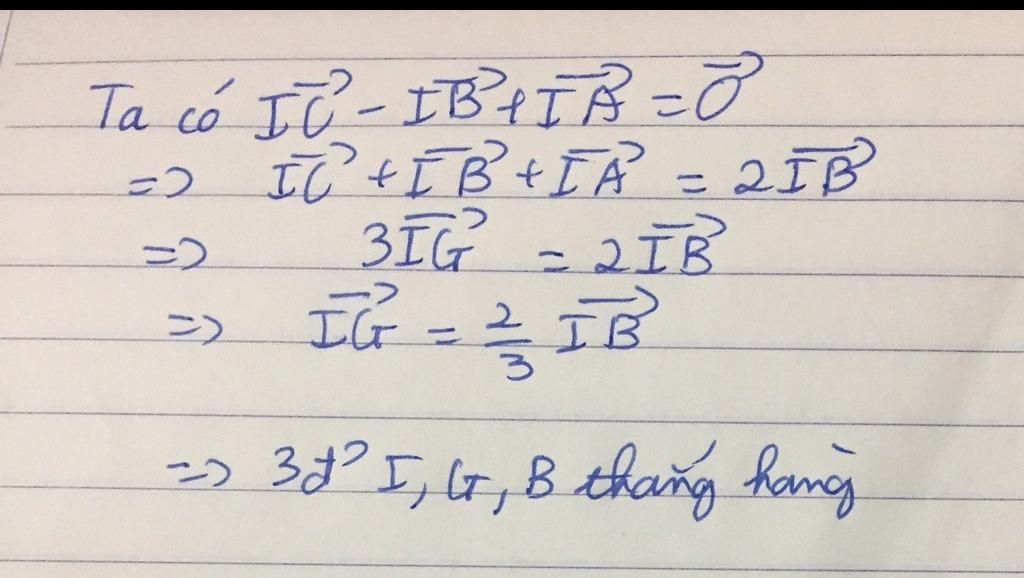 Ta có $\overrightarrow{IC} - \overrightarrow{IB} + \overrightarrow{IA} = \overrightarrow{O}$
=> $\overrightarrow{IC} + \overrightarrow{IB} + \overrightarrow{IA} = 2\overrightarrow{IB}$
=> $3\overrightarrow{IG} = 2\overrightarrow{IB}$
=> $\overrightarrow{IG} = \frac{2}{3}\overrightarrow{IB}$
=> 3đ' I, G, B thẳng hàng